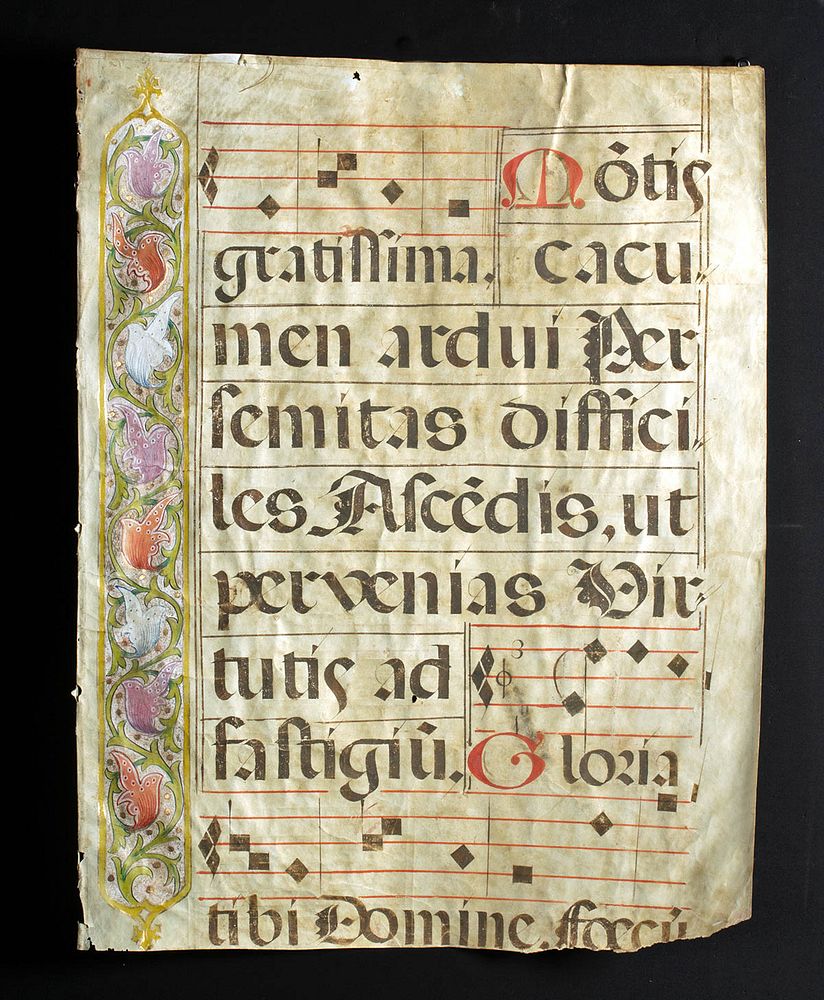 Mõtis
gratissima, cacu-
men ardui Per
semitas diffici-
les Ascẽdis, ut
pervenias Vir-
tutis ad
fastigiũ.
3
Gloria
tibi Domine, fœcũ